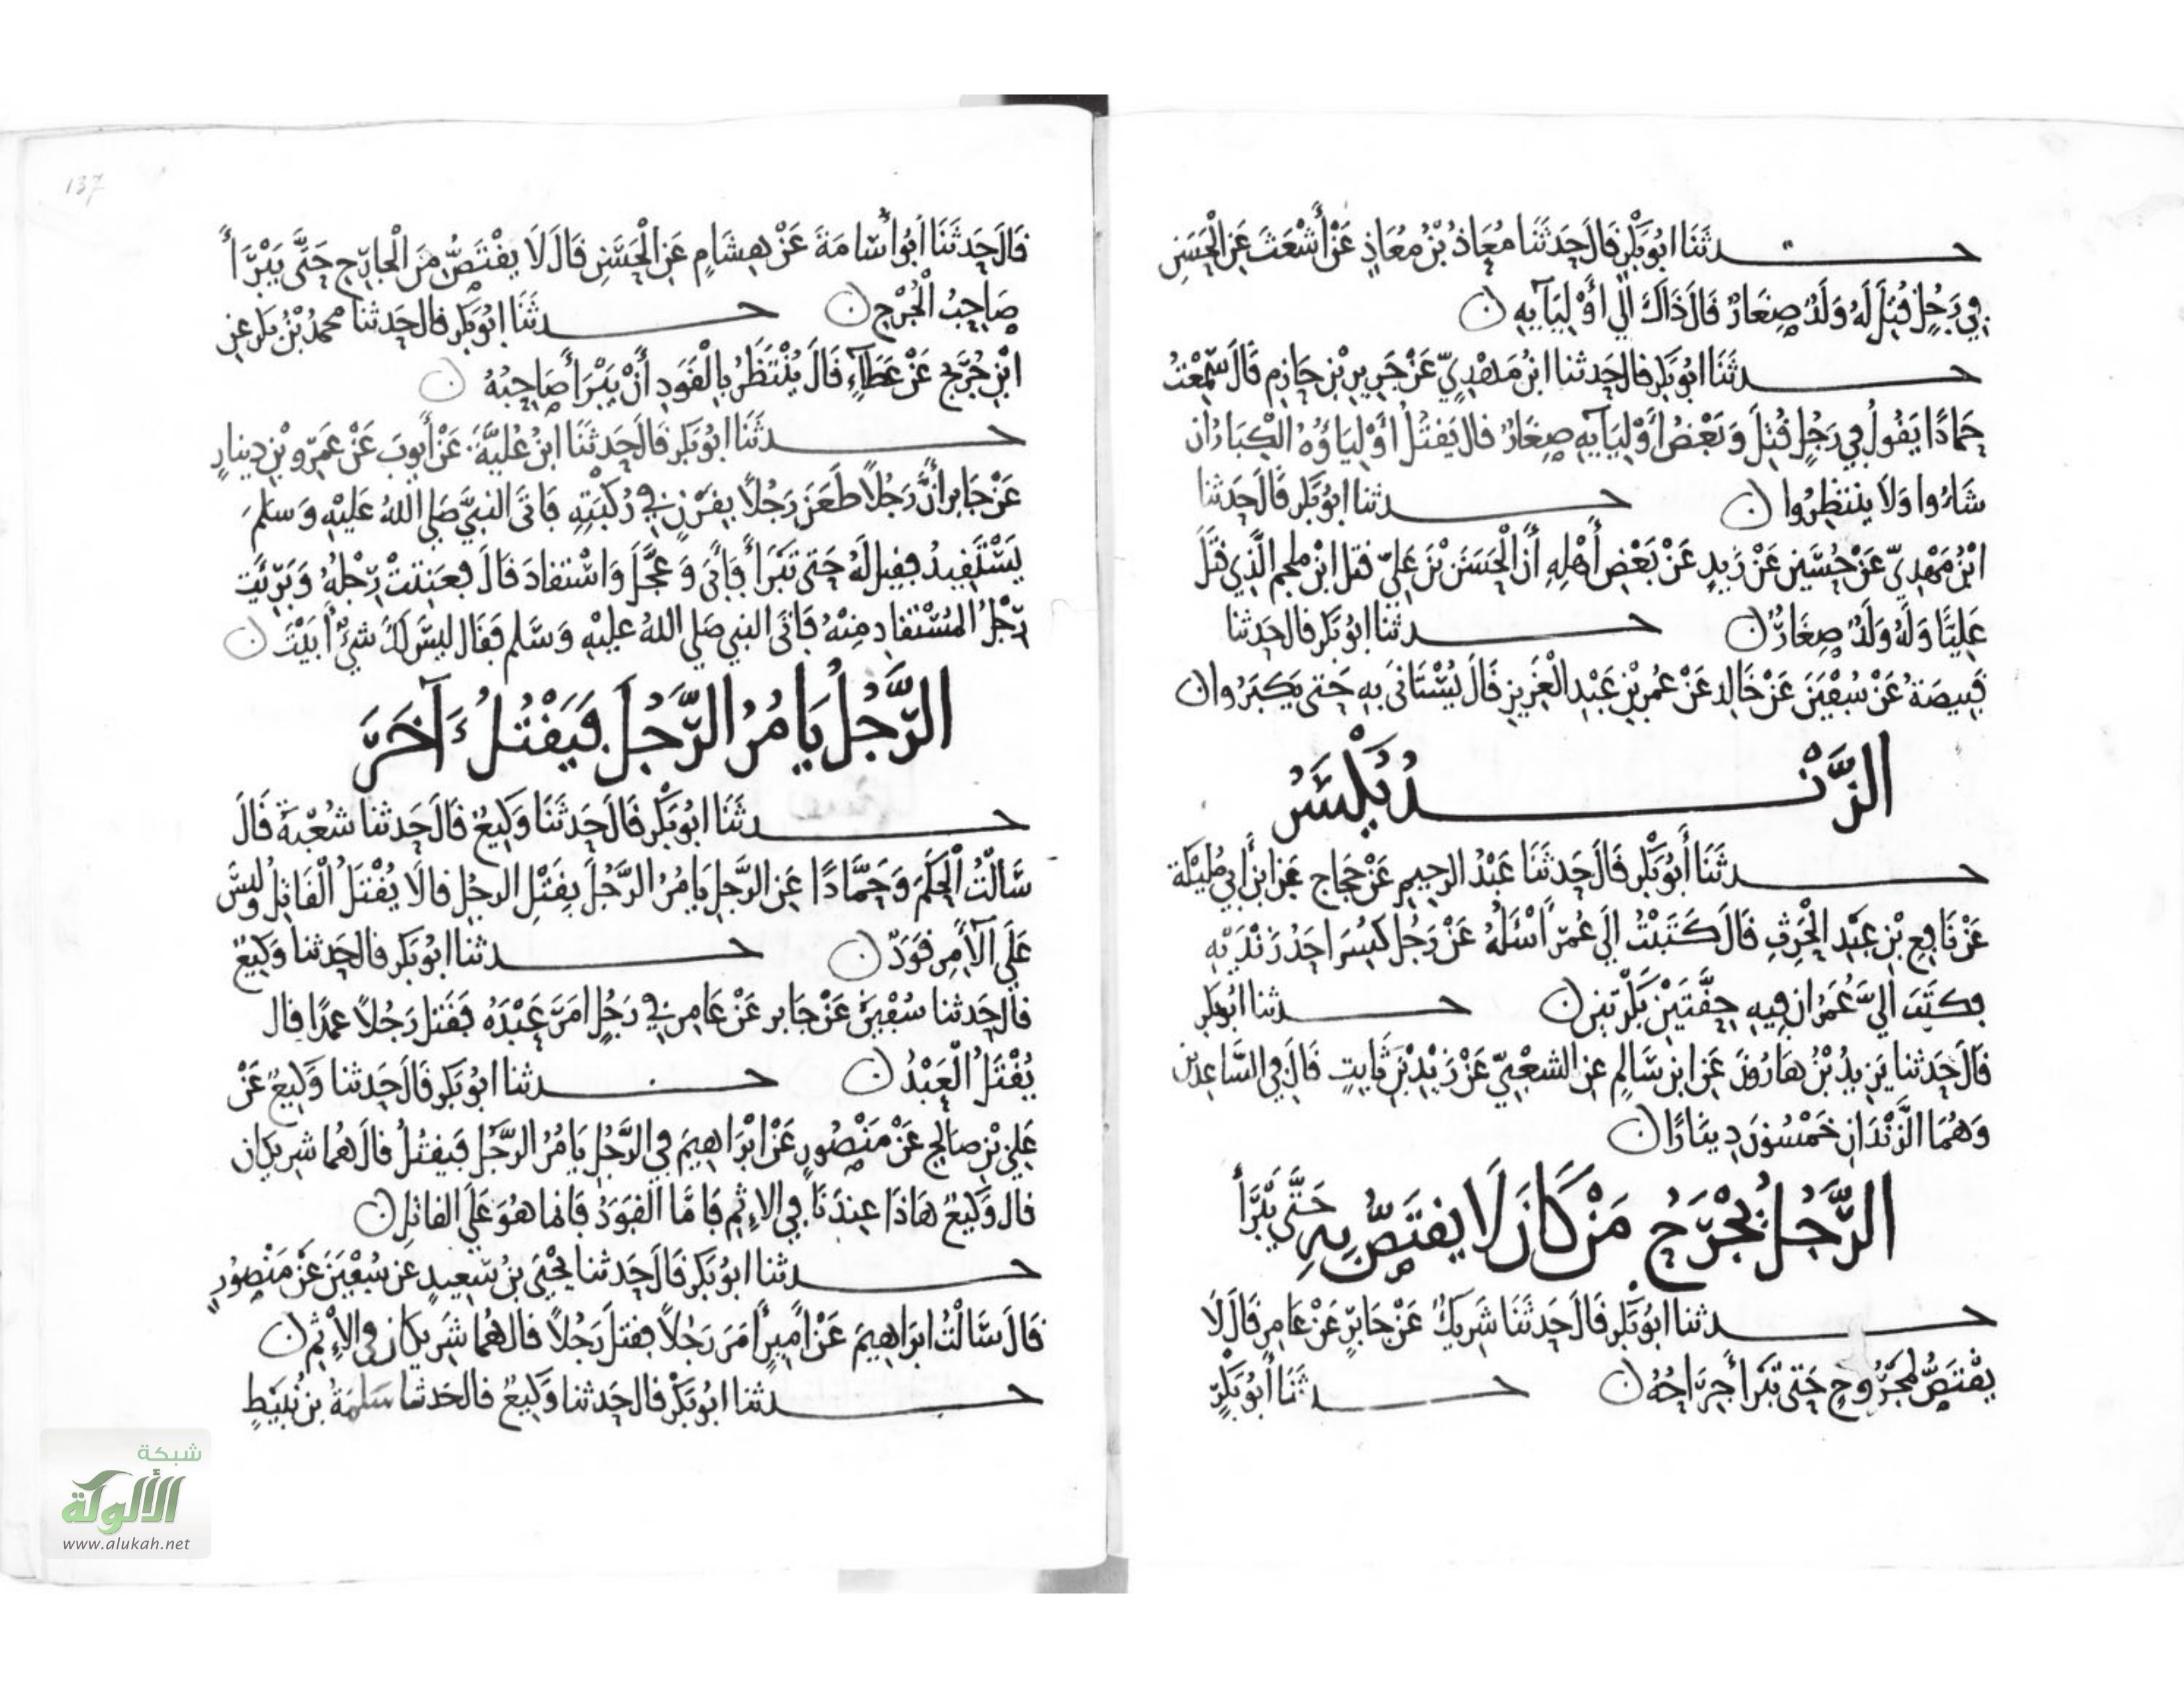 حدثنا ابو بكر قال حدثنا معاذ بن معاذ عن أشعث عن الحسن
في رجل قتل له ولد صغار قال ذاك الي أوليآيه ن
حدثنا ابو بكر قال حدثنا ابن مهدي عن جرير بن حازم قال سمعت
حمادا يقول في رجل قتل وبعض أوليآيه صغار قال يقتل أولياؤه الكبار ان
شاءوا ولا ينتظروا ن حدثنا ابو بكر قال حدثنا
ابن مهدي عن حسين عن زيد عن بعض أهله أن الحسن بن علي قتل ابن ملجم الذي قتل
عليا وله ولد صغار ن حدثنا ابو بكر قال حدثنا
قبيصة عن سفين عن خالد عن عمر بن عبد العزيز قال يستانى به حتى يكبروا ن
الزند يكسر
حدثنا أبو بكر قال حدثنا عبد الرحيم عن حجاج عن ابن أبي مليكة
عن نافع بن عبد الحرث قال كتبت الي عمر أسئله عن رجل كسر احد زنديه
فكتب الي عمر ان فيه حقتين بكرتين ن حدثنا ابو بكر
قال حدثنا يزيد بن هارون عن ابن سالم عن الشعبي عن زيد بن ثابت قال في الساعدين
وهما الزندان خمسون دينارا ن
الرجل يجرح من كان لا يقتص به حتى يبرأ
حدثنا ابو بكر قال حدثنا شريك عن جابر عن عامر قال لا
يقتص لمجروح حتى تبرأ جراحه ن حدثنا أبو بكر
137
قال حدثنا ابو اسامة عن هشام عن الحسن قال لا يقتص من الجارح حتى يبرأ
صاحب الجرح ن حدثنا ابو بكر قال حدثنا محمد بن بكر عن
ابن جريج عن عطآء قال ينتظر بالقود أن يبرأ صاحبه ن
حدثنا ابو بكر قال حدثنا ابن علية عن أيوب عن عمرو بن دينار
عن جابر أن رجلا طعن رجلا بقرن في ركبته فاتى النبي صلى الله عليه وسلم
يستقيد فقيل له حتى تبرأ فابى وعجل واستقاد قال فعنتت رجله وبريت
رجل المستقاد منه فاتى النبي صلي الله عليه وسلم فقال ليس لك شئ أبيت ن
الرجل يامر الرجل فيقتل ءآخر
حدثنا ابو بكر قال حدثنا وكيع قال حدثنا شعبة قال
سألت الحكم وحمادا عن الرجل يامر الرجل بقتل الرجل قالا يقتل القاتل وليس
على الآمر قود ن حدثنا ابو بكر قال حدثنا وكيع
قال حدثنا سفين عن جابر عن عامر في رجل امر عبده فقتل رجلا عمدا قال
يقتل العبد ن حدثنا ابو بكر قال حدثنا وكيع عن
علي بن صالح عن منصور عن ابراهيم في الرجل يامر الرجل فيقتل قال هما شريكان
قال وكيع هاذا عندنا في الاثم فاما القود فانما هو على القاتل ن
حدثنا ابو بكر قال حدثنا يحيى بن سعيد عن سفين عن منصور
قال سالت ابراهيم عن أمير أمر رجلا فقتل رجلا قال هما شريكان في الاثم ن
حدثنا ابو بكر قال حدثنا وكيع قال حدثنا سلمة بن نبيط
شبكة
الألوكة
www.alukah.net